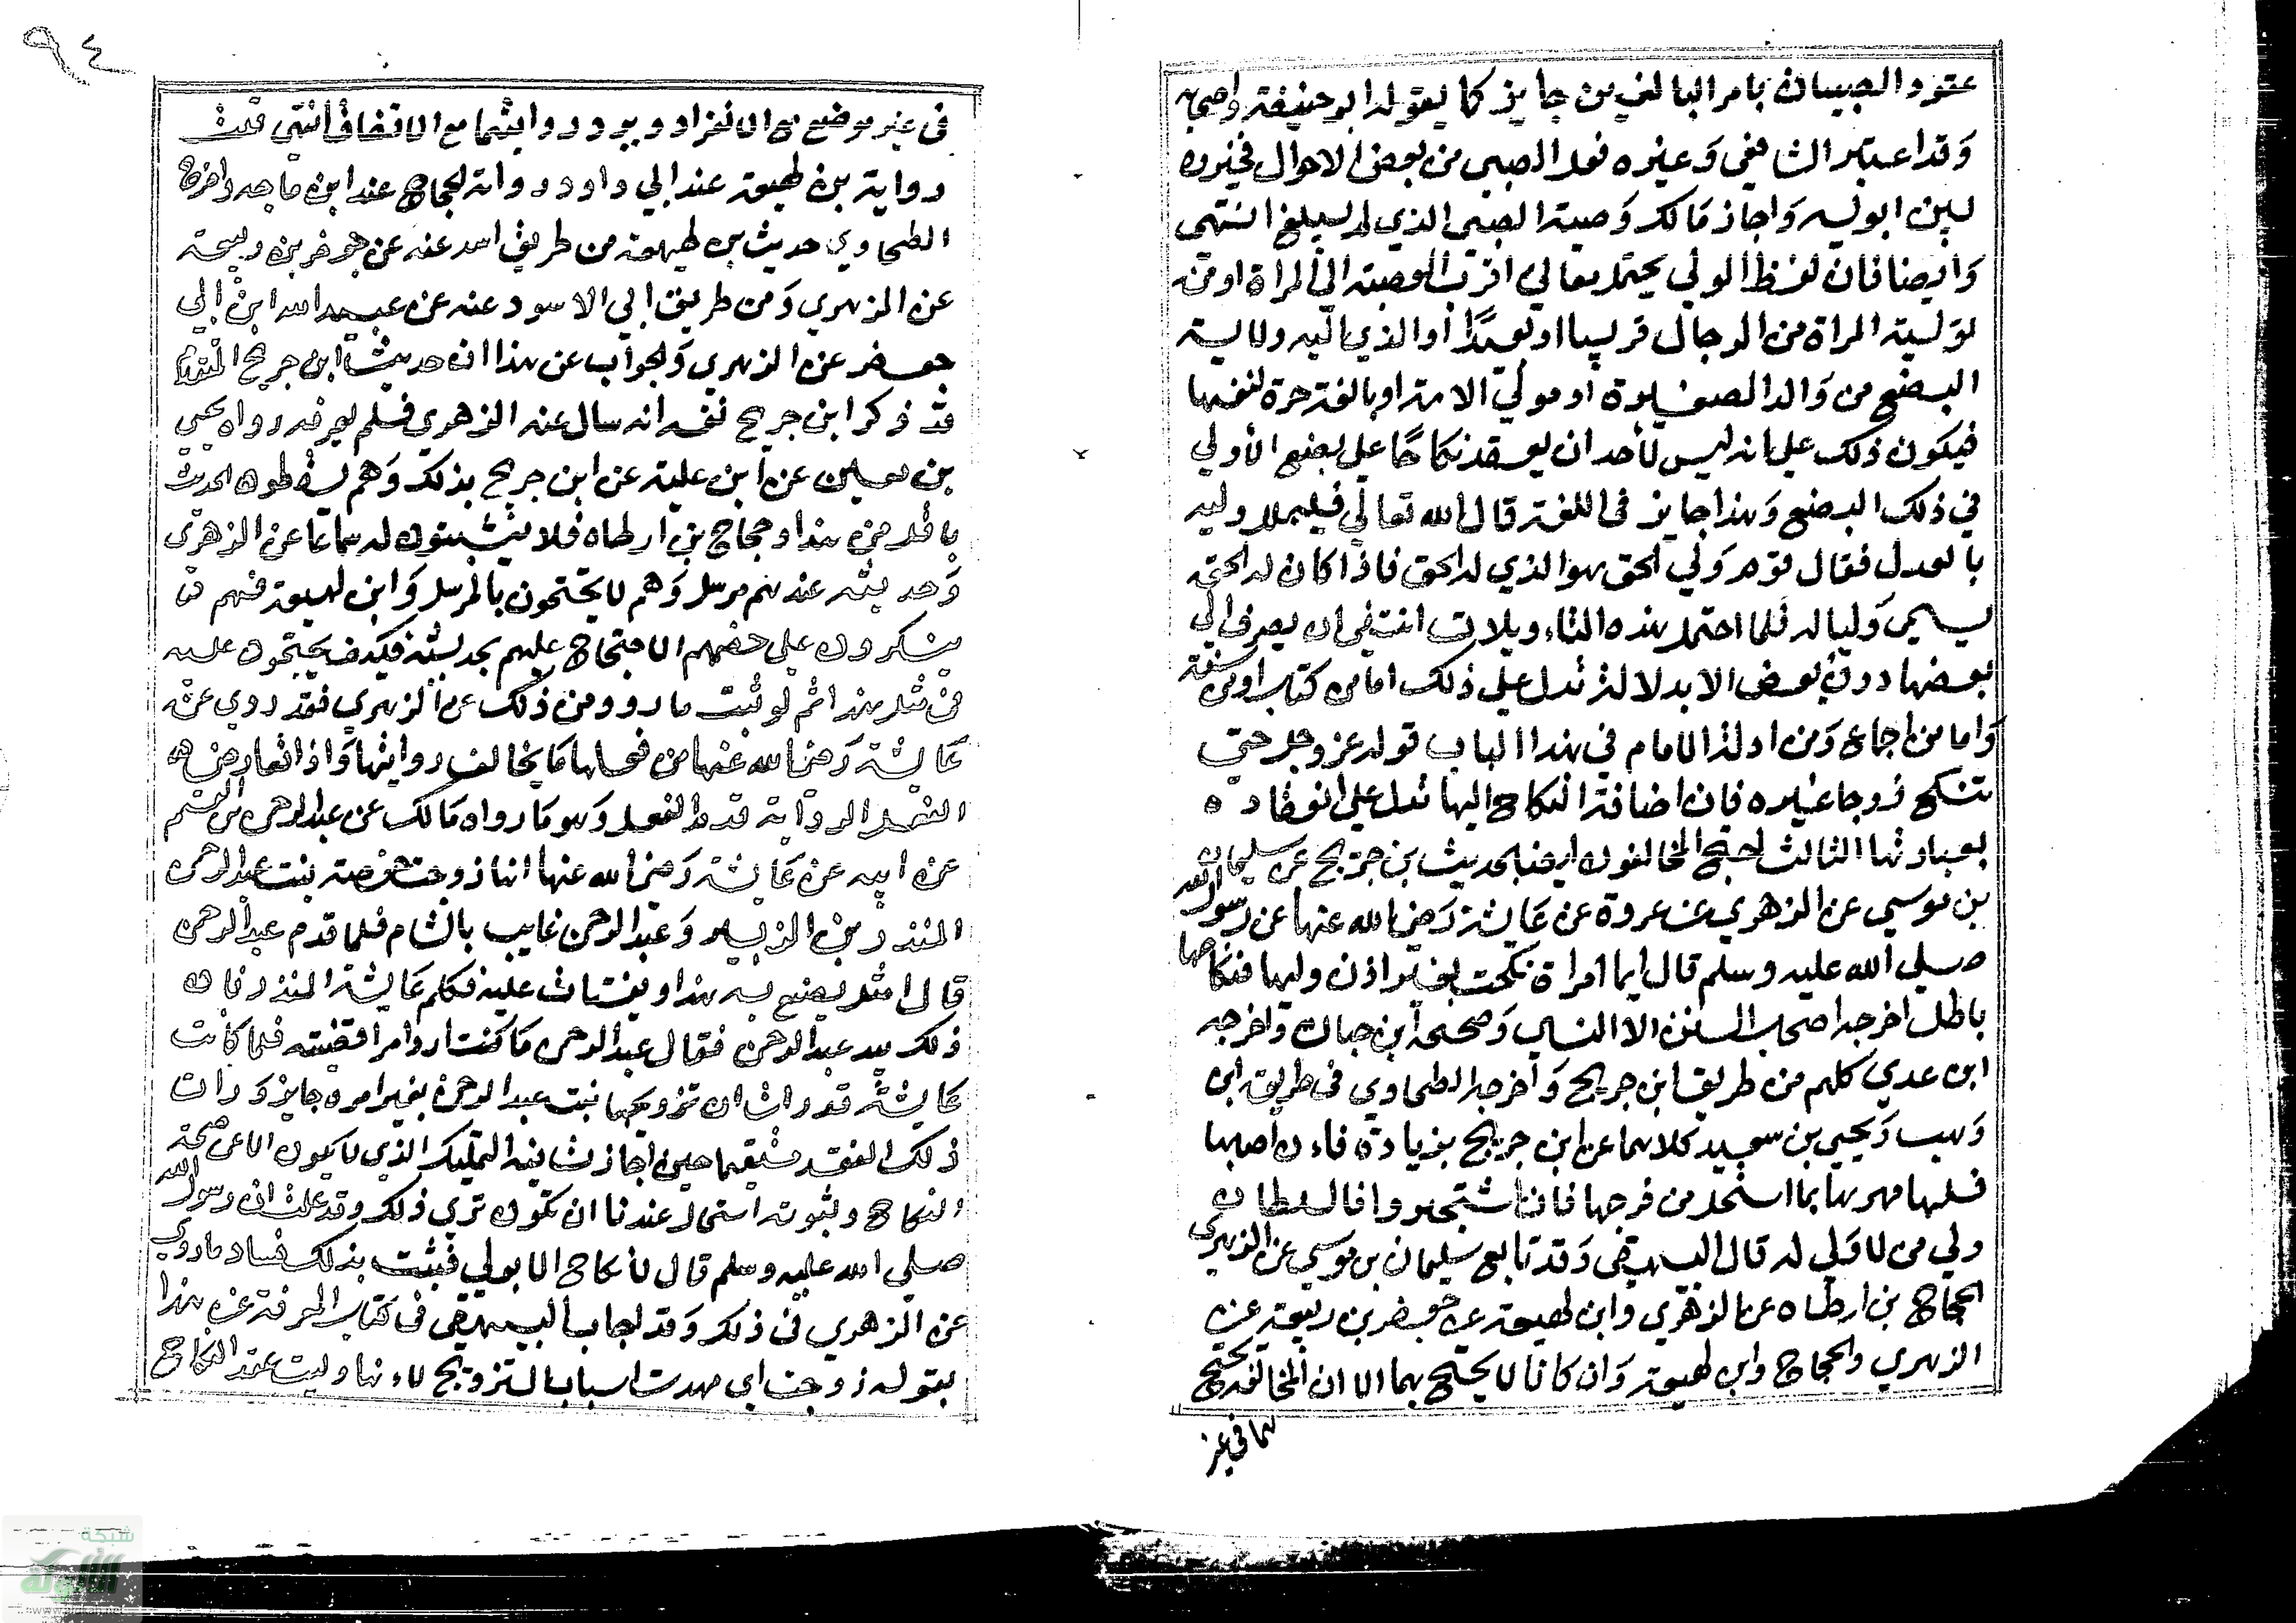 عقود الصبيان بامر البالغين جايز كما يقوله ابو حنيفة واصحابه
وقد اعتبر الشافعي وغيره فعل الصبي من بعض الاحوال فخيروه
بين ابويه واجاز مالك وصية الصبي الذي لم يبلغ انتهى
وايضا فان لفظ الولي يحتمل معاني اقرب العصبة الى المراة او من
توليه المراة من الرجال قريبا او بعيدا أو الذي اليه ولاية
البضع من والد الصغيرة او مولي الامة او بالغة حرة لنفسها
فيكون ذلك على انه ليس لأحد ان يعقد نكاحا على بضع الا ولي
في ذلك البضع وهذا جايز في اللغة قال الله تعالي فليملل وليه
بالعدل فقال قوم ولي الحق هو الذي له الحق فاذا كان له الحق
يسمي وليا له فلما احتمل هذه التاءويلات انتفى ان يصرف الي
بعضها دون بعض الا بدلالة تدل على ذلك اما من كتاب او من سنة
واما من اجماع ومن ادلة الامام في هذا الباب قوله عز وجل حتي
تنكح زوجا غيره فان اضافة النكاح اليها تدل على انعقاده
بعبارتها الثالث احتج المخالفون ايضا بحديث بن جريج عن سليمان
بن موسي عن الزهري عن عروة عن عايشة رضي الله عنها عن رسول الله
صلى الله عليه وسلم قال ايما امراة نكحت بغير اذن وليها فنكاحها
باطل اخرجه اصحاب السنن الا النساي وصححه ابن حبان واخرجه
ابن عدي كلهم من طريق ابن جريج وأخرجه الطحاوي في طريق ابن
وهب ويحيي بن سعيد كلاهما عن ابن جريج بزيادة فاءن اصابها
فلها مهرها بما استحل من فرجها فان اشتجروا فالسلطان
ولي من لا ولي له قال البيهقي وقد تابع سليمان بن موسي عن الزهري
الحجاج بن ارطاه عن الزهري وابن لهيعة عن جعفر بن ربيعة عن
الزهري والحجاج وابن لهيعة وان كانا لا يحتج بهما الا ان المخالف يحتج
بهما في غير
٩٤
في غير موضع مع الانفراد ويرد روايتهما مع الاتفاق انتهى قلت
رواية بن لهيعة عند ابي داود ورواية الحجاج عند ابن ماجه واخرج
الطحاوي حديث بن لهيعة من طريق اسد عنه عن جعفر بن ربيعة
عن الزهري ومن طريق ابي الاسود عنه عن عبيد الله ابن ابي
جعفر عن الزهري والجواب عن هذا ان حديث ابن جريج المتقدم
قد ذكر ابن جريج نفسه انه سال عنه الزهري فلم يعرفه رواه يحيي
بن معين عن أبن علية عن ابن جريج بذلك وهم يسقطون الحديث
باقل من هذا وحجاج بن ارطاه فلا يثبتون له سماعا عن الزهري
وحديثه عندهم مرسل وهم لا يحتجون بالمرسل وابن لهيعة فهم
ينكرون على خصمهم الاحتجاج عليهم بحديثه فكيف يحتجون عليه
في مثل هذا ثم لو ثبت ما رووه من ذلك عن الزهري فقد روي عن
عايشة رضي الله عنها من فعلها ما يخالف روايتها واذا تعارض
الفعل الرواية قدم الفعل وهو ما رواه مالك عن عبد الرحمن بن القسم
عن ابيه عن عايشة رضي الله عنها انها زوجت حفصة بنت عبد الرحمن
المنذر بن الزبير وعبد الرحمن غايب بالشام فلما قدم عبد الرحمن
قال امثلي يصنع به هذا ويفتات عليه فكلم عايشة المنذر فان
ذلك بيد عبد الرحمن فقال عبد الرحمن ما كنت ارد امرا قضيته فلما كانت
عايشة قد رات ان تزويجها بنت عبد الرحمن بغير امره جايز ورات
ذلك العقد مستقيما حين اجازت فيه التمليك الذي لا يكون الا عن صحة
النكاح وثبوته استحال عندنا ان تكون تري ذلك وقد علمت ان رسول الله
صلى الله عليه وسلم قال لا نكاح الا بولي فثبت بذلك فساد ما روي
عن الزهري في ذلك وقد اجاب البيهقي في كتاب المعرفة عن هذا
بقوله زوجت اي مهدت اسباب التزويج لاءنها وليت عقد النكاح